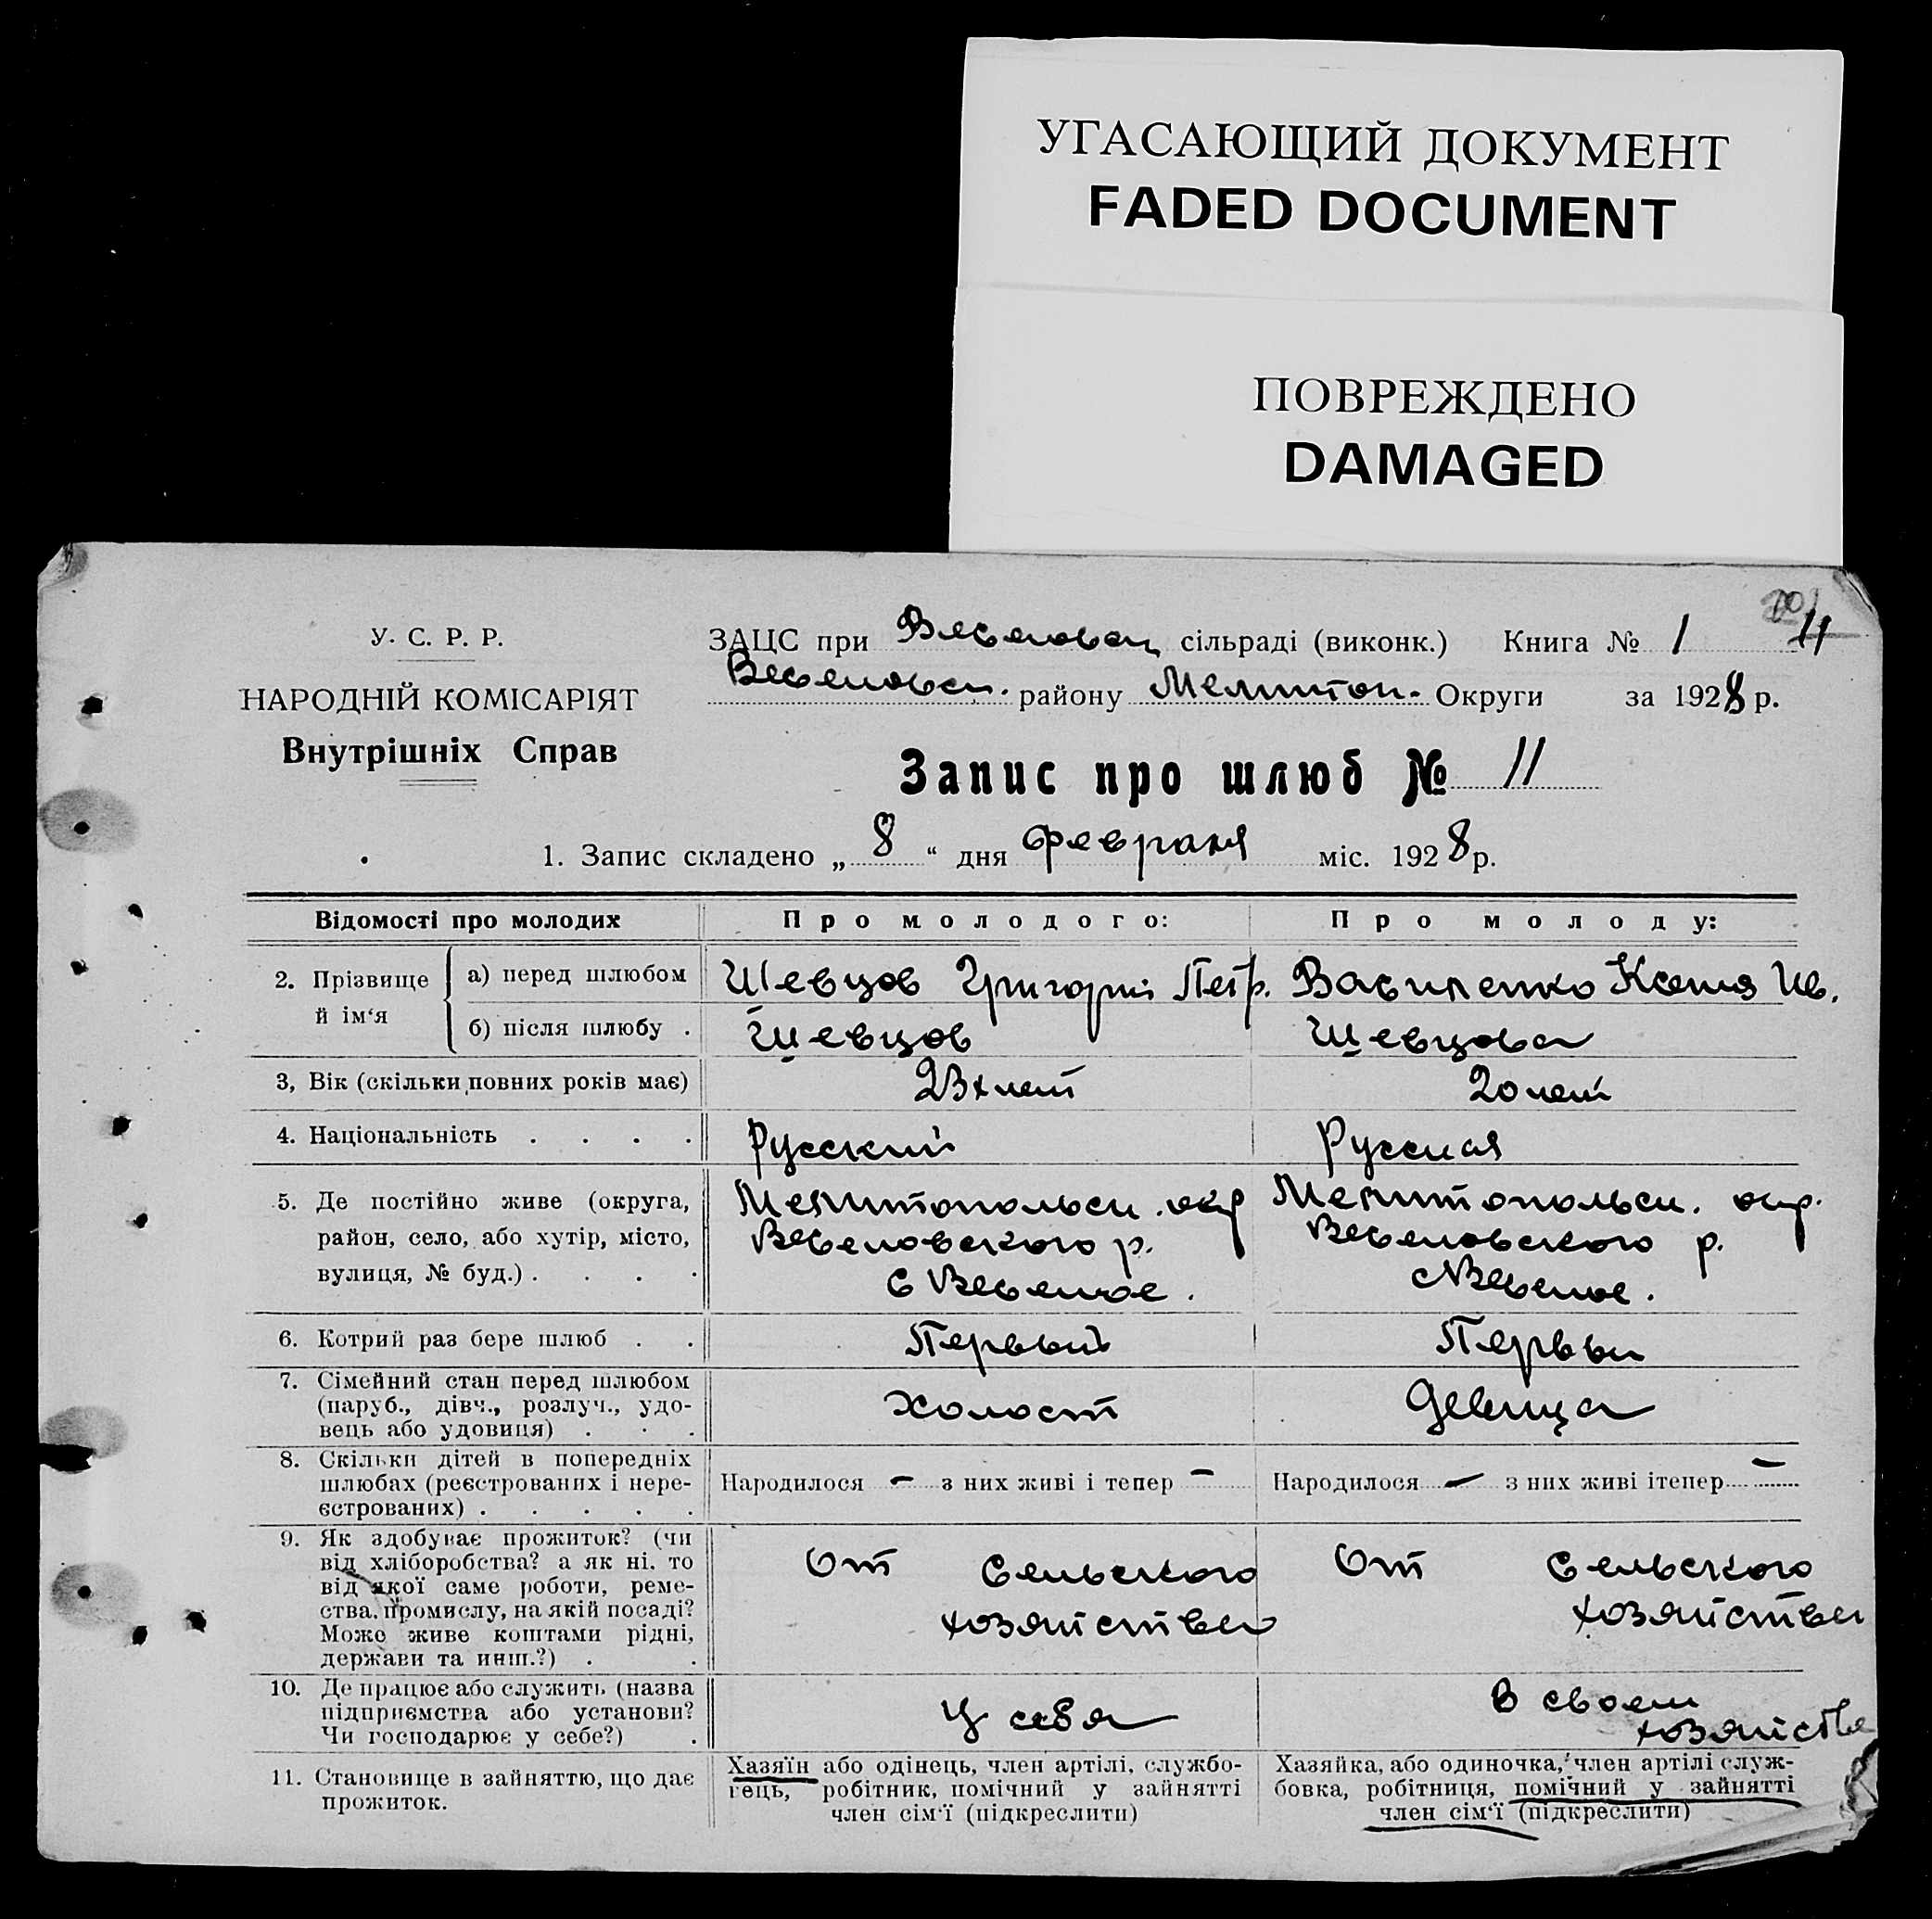 УГАСАЮЩИЙ ДОКУМЕНТ
FADED DOCUMENT
ПОВРЕЖДЕНО
DAMAGED
4
У. С. Р. Р.
НАРОДНІЙ КОМІСАРІЯТ
Внутрішніх Справ
ЗАЦС при Веселовск сільраді (виконк.) Книга № 1
Веселовск. району Мелитоп. Округи за 1928 р.
Запис про шлюб № 11
1. Запис складено „ 8 “ дня февраля міс. 1928 р.
Відомості про молодих Про молодого: Про молоду:
2. Прізвище й ім‘я
а) перед шлюбом Шевцов Григорий Петр. Василенко Ксения Ив.
б) після шлюбу . Шевцов Шевцова
3, Вік (скільки повних років має) 23х лет 20 лет
4. Національність . . . . Русский Русская
5. Де постійно живе (округа, Мелитопольск. окр Мелитопольск. окр.
район, село, або хутір, місто, Веселовского р. Веселовского р.
вулиця, № буд.) . . . . С Веселое. с Веселое.
6. Котрий раз бере шлюб . . Первый Первый
7. Сімейний стан перед шлюбом
(паруб., дівч., розлуч., удо- Холост Девица
вець або удовиця) . . .
8. Скільки дітей в попередніх
шлюбах (реєстрованих і нере- Народилося – з них живі і тепер – Народилося – з них живі ітепер –
єстрованих) . . . . .
9. Як здобуває прожиток? (чи
від хліборобства? а як ні, то От Сельского От Сельского
від якої саме роботи, реме-
ства, промислу, на якій посаді? хозяйства хозяйства
Може живе коштами рідні,
держави та инш.?) . .
10. Де працює або служить (назва В своем
підприємства або установи? У себя хозяйстве
Чи господарює у себе?) .
11. Становище в зайняттю, що дає
прожиток.
Хазяїн або одінець, член артілі, службо-
вець, робітник, помічний у зайнятті
член сім‘ї (підкреслити)
Хазяйка, або одиночка, член артілі служ-
бовка, робітниця, помічний у зайнятті
член сім‘ї (підкреслити)